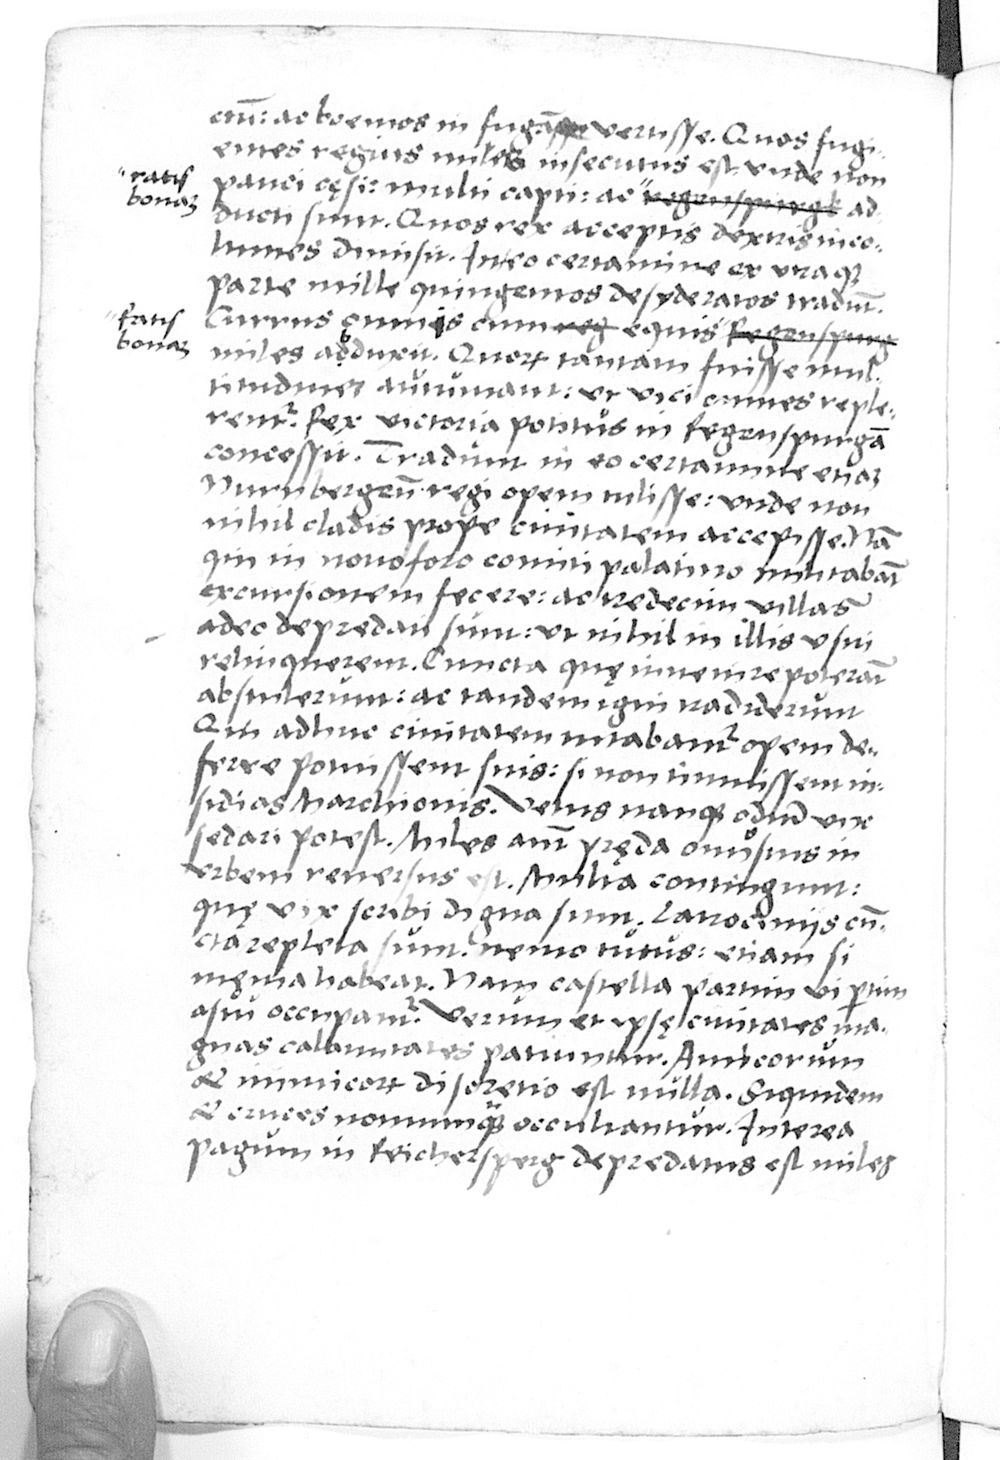 ctū: ac boemos in fugā vertisse. Quos fugi-
entes regius miles insecutus est vnde non
"ratis
bonaʒ
pauci cęsi: multi capti: ac " regenspurgk ad
ducti sunt. Quos rex acceptis dextris inco-
lumes dimisit. In eo certamine ex vtraqꝫ
parte mille quingentos desyderatos tradūt.
"Ratis
bonaʒ
Currus omnis cum reg equis " Regenspurg
miles adduxit. Quoꝝ tantam fuisse mul-
titudineʒ autumant: vt vici omnes reple-
rent᷑. Rex victoria potitus in Regenspurgā
concessit. Tradunt in eo certamine etiaʒ
Nurnbergeñ regi opem tulisse: vnde non
nihil cladis prope ciuitatem accepisse. Nā
qui in nouoforo comiti palatino militabāt
excursionem fecere: ac tredecim villas
adeo depredati sunt: vt nihil in illis vsui
relinquerent. Cuncta quę inuenire poterāt
abstulerunt: ac tandem igni tradiderunt
Qui adhuc ciuitatem mitabant᷑ opem de-
ferre potuissent suis: si non timuissent in-
sidias Marchionis. Vetus nanqꝫ odiū vix
sedari potest. Miles aūt pręda onustus in
vrbem reuersus est. Multa contingunt:
quę vix scribi digna sunt. Latrocinijs cū-
cta repleta sunt: nemo tutus: etiam si
męnia habeat. Nam castella partim vi ꝑtim
astu occupant᷑. Verum et ipsę ciuitates ma-
gnas calamitates patiuntur. Amicorum
& inimicoꝝ discretio est nulla. Siquidem
& cruces nonnunqꝫ occultantur. Interea
pagum in Reichersperg depredatus est miles